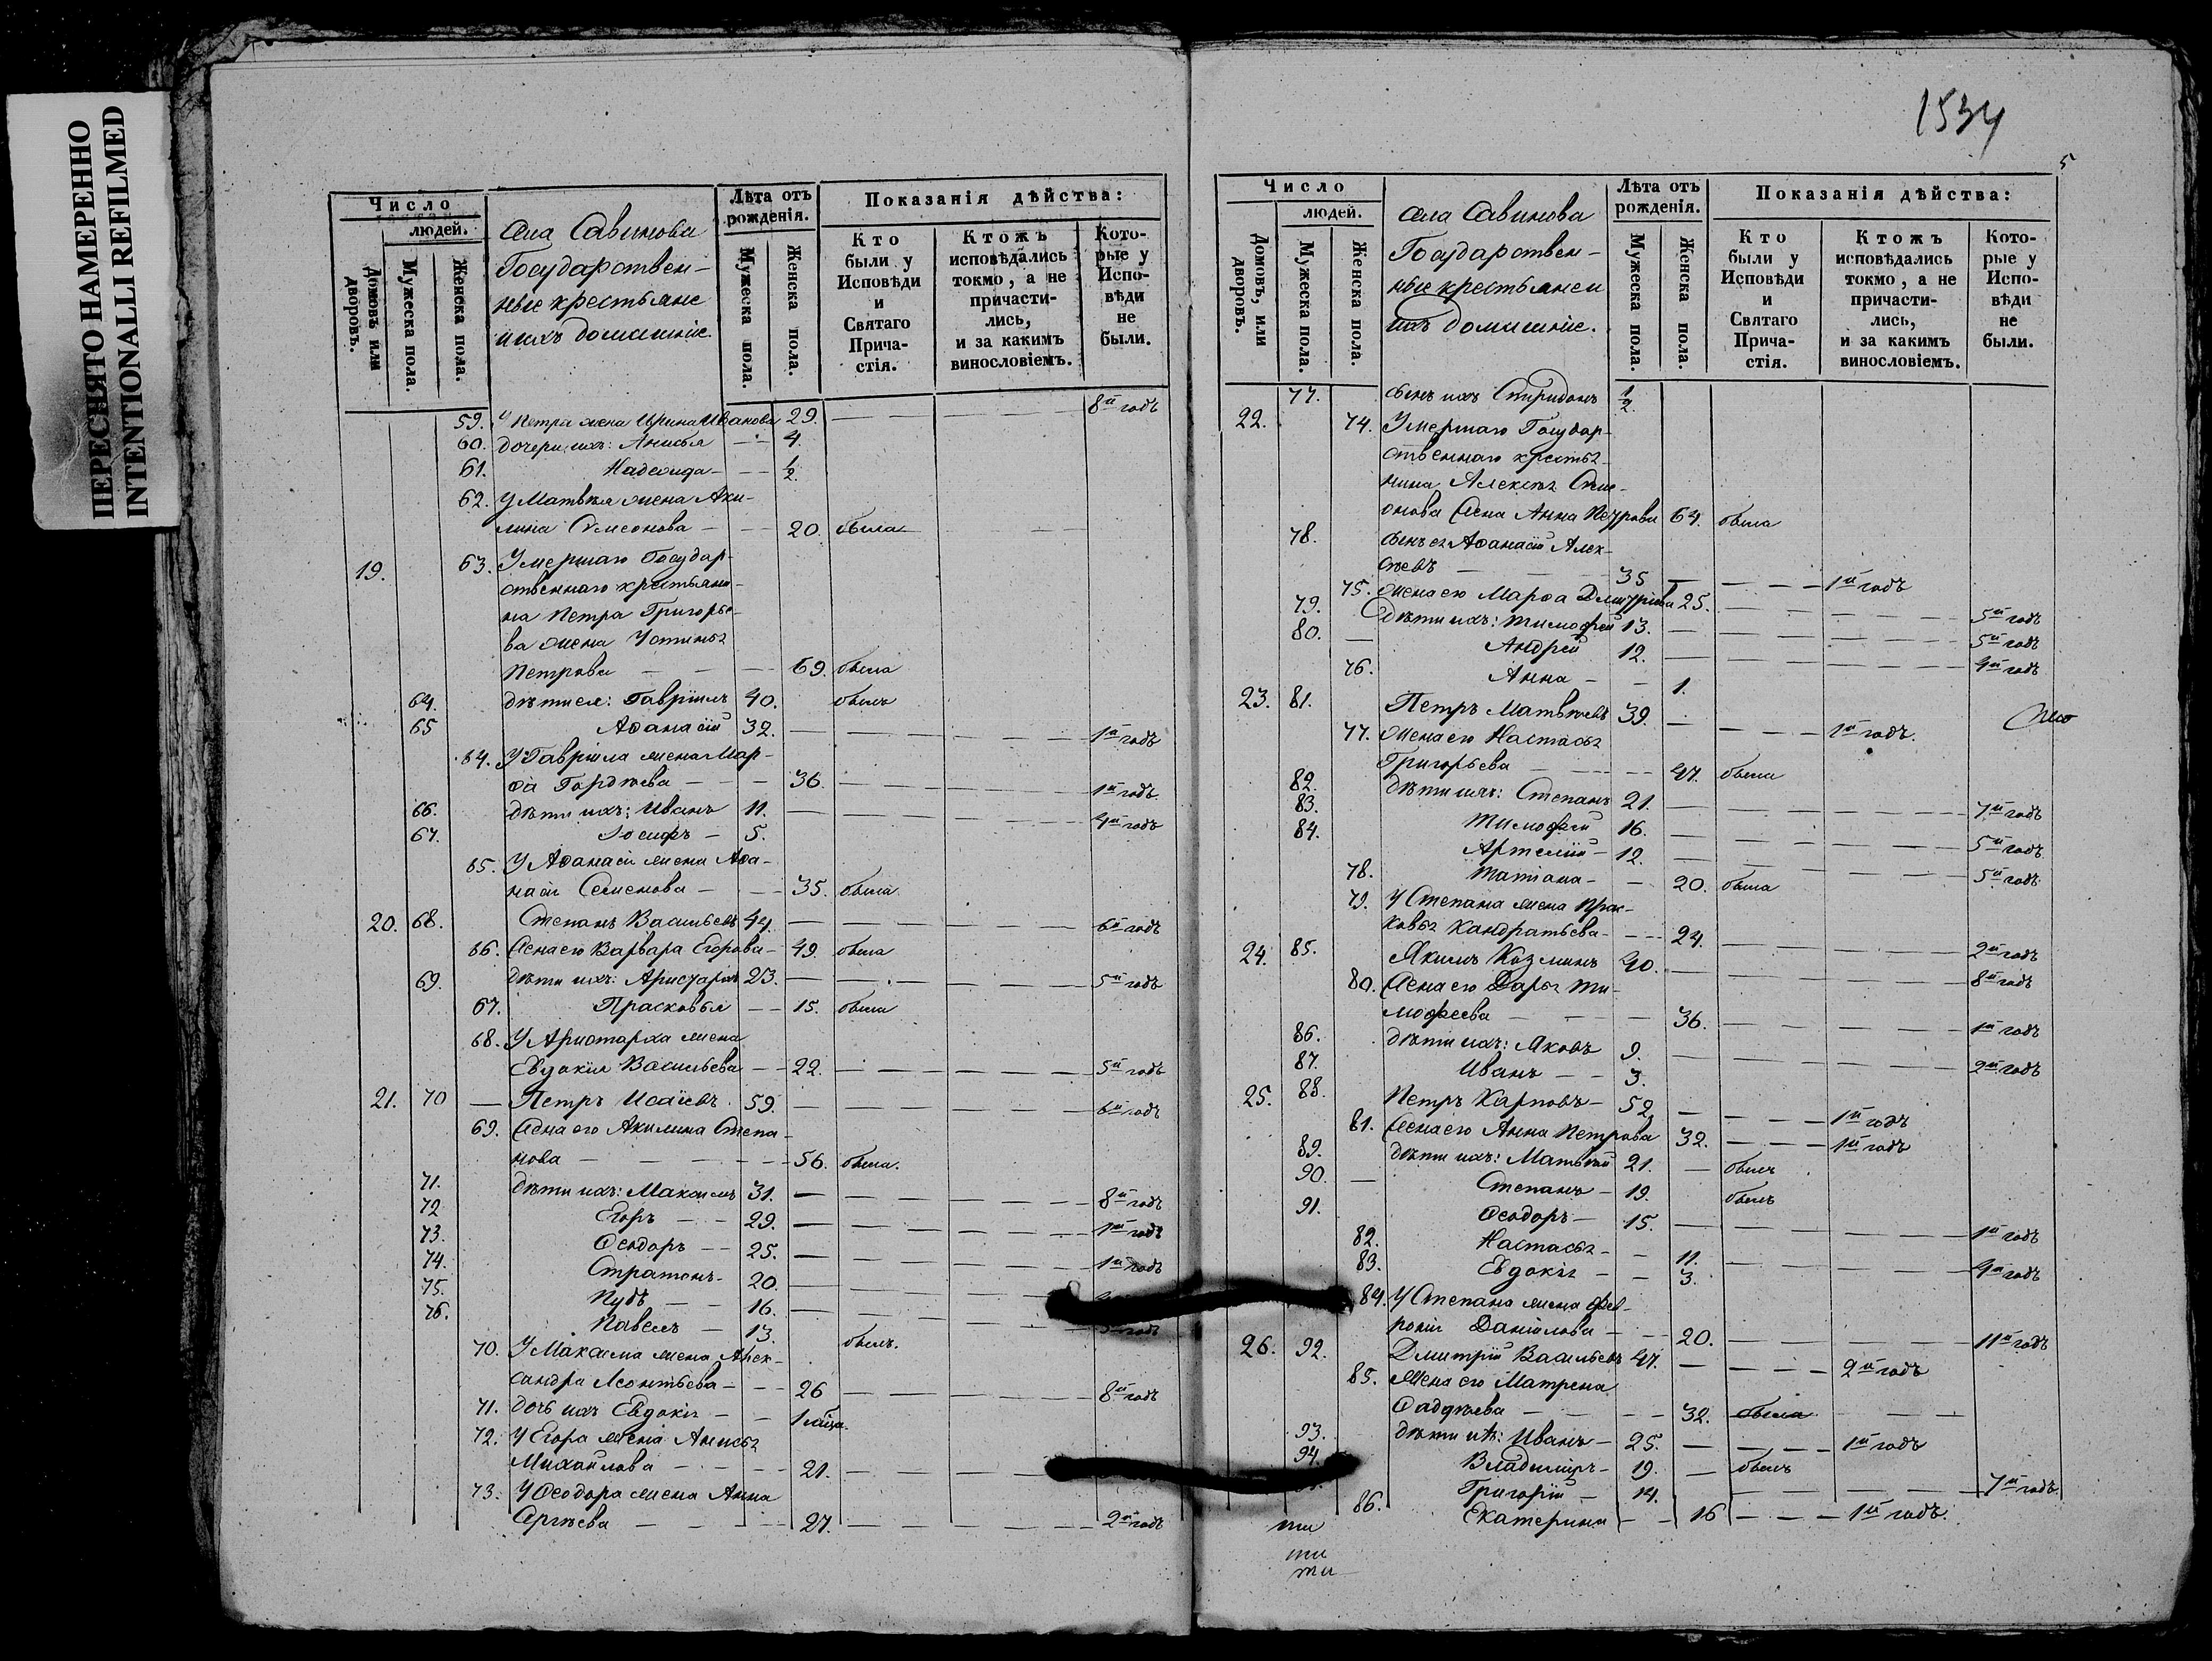 ПЕРЕСНЯТО НАМЕРЕННО
INTENTIONALLI REFILMED
Число
людей.
Домовъ или дворовъ.
Мужеска пола.
Женска пола.
села Савинова
Государствен-
ные крестьяне
и ихъ домашніе.
Лѣта отъ рожденія.
Мужеска пола.
Женска пола.
Показанія дѣйства:
Кто были у Исповѣди и Святаго Прича-стія.
Ктожъ исповѣдались токмо, а не причасти-лись, и за какимъ винословіемъ.
Кото-рые у Испо-вѣди не были.
59. У Петра жена Ирина Иванова 29. 8й годъ
60. дочери ихъ: Анисья 4.
61. Надежда 1/2
62. У Матвѣя жена Аки-
лина Симеонова 20. была
19. 63. Умершаго Государ-
ственнаго крестьяни-
на Петра Григорье-
ва жена Устинья
Петрова 69. была
64. дѣти ея: Гавріилъ 40. былъ
65 Аѳанасій 32. 1й годъ
64. У Гавріила жена Мар-
ѳа Гордѣева 36. 1й годъ
66. дѣти ихъ: Иванъ 11. 4й годъ
67. Іосифъ 5.
65. У Аѳанасія жена Аѳа-
насія Семенова 35. была
20. 68. Степанъ Васильевъ 44. 6й годъ
66. Жена его Варвара Егорова 49. была
69. дѣти ихъ: Аристархъ 23. 5й годъ
67. Прасковья 15. была
68. У Аристарха жена
Евдокія Васильева 22. 5й годъ
21. 70 Петръ Исаіевъ 59. 6й годъ
69. Жена его Акилина Степа-
нова 56. была.
71. дѣти ихъ: Максимъ 31. 8й годъ
72 Егоръ 29. 1й годъ
73. Ѳеодоръ 25. 1й годъ
74. Стратонъ 20.
75. Пудъ 16. годъ
76. Павелъ 13. былъ.
70. У Максима жена Алек-
сандра Леонтьева 26 8й годъ
71. дочь ихъ Евдокія 1 мѣсяца.
72. У Егора жена Анисья
Михайлова 21.
73. У Ѳеодора жена Анна
Сергѣева 27. 2й годъ
1534
5
Число
людей.
Домовъ, или дворовъ.
Мужеска пола.
Женска пола.
села Савинова
Государствен-
ные крестьяне и
ихъ домашніе.
Лѣта отъ рожденія.
Мужеска пола.
Женска пола.
Показанія дѣйства:
Кто были у Исповѣди и Святаго Прича-стія.
Ктожъ исповѣдались токмо, а не причасти-лись, и за какимъ винословіемъ.
Кото-рые у Испо-вѣди не были.
77. сынъ ихъ Спиридонъ 1/2.
22. 74. Умершаго Государ-
ственнаго крестья-
нина Алексѣя Сим-
онова жена Анна Петрова 64. была
78. сынъ ея Аѳанасій Алек-
сѣевъ 35 1й годъ
75. Жена его Марѳа Дмитріева 25. 5й годъ
79. дѣти ихъ: Тимофей 13. 5й годъ
80. Андрей 12. 4й годъ
76. Анна 1.
23. 81. Петръ Матвѣевъ 39. 1й годъ.
77. Жена его Настасья
Григорьева 47. была
82. дѣти ихъ: Степанъ 21. 7й годъ
83. Тимофей 16. 5й годъ
84. Артемій 12. 5й годъ
78. Татіана 20. была
79. У Степана жена Прас-
ковья Кандратьева 24. 2й годъ
24. 85. Якимъ Козминъ 40. 8й годъ
80. Жена его Дарья Ти-
мофеева 36. 1й годъ
86. дѣти ихъ: Яковъ 9. 2й годъ
87. Иванъ 3.
25. 88. Петръ Карповъ 52 1й годъ
81. Жена его Анна Петрова 32. 1й годъ
89. дѣти ихъ: Матвѣй 21. былъ
90. Степанъ 19. былъ
91. Ѳеодоръ 15. 1й годъ
82. Настасья 11. 4й годъ
83. Евдокія 3.
84. У Степана жена Фев-
ронія Даніилова 20. 11й годъ
26. 92. Дмитрій Васильевъ 47. 2й годъ
85. Жена его Матрена
Фаддѣева 32. была
93. дѣти ихъ: Иванъ 25. 1й годъ
94. Владиміръ 19. былъ
Григорій 14. 7й годъ
86. Екатерина 16 1й годъ.
ти
ти
ти